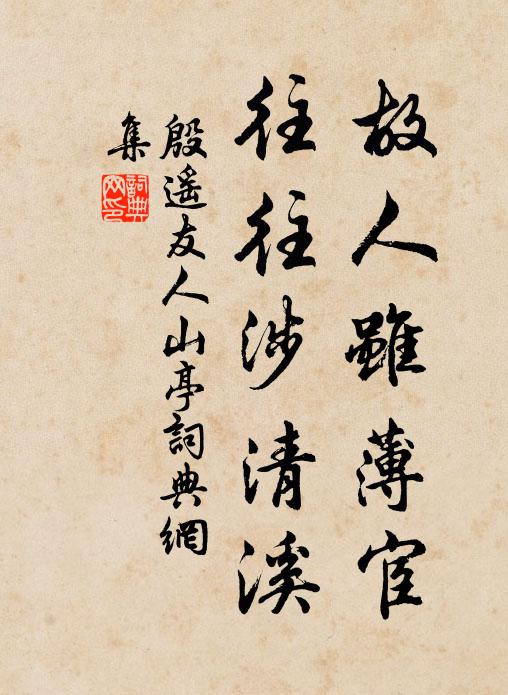 故人雖薄宦
往往涉清溪
殷遥友人山亭詞典網
集
詞典
网印